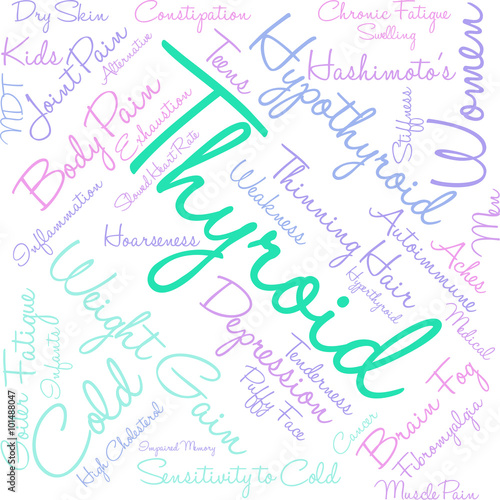 Dry Skin
Constipation
Chronic Fatigue
Swelling
Kids
Alternative
Teens
Hashimoto's
Women
NDT
Joint Pain
Hypothyroid
Stiffness
Body Pain
Exhaustion
Slowed Heart Rate
Thyroid
Weakness
Thinning Hair
Men
Inflammation
Hoarseness
Autoimmune
Aches
Hyperthyroid
Medical
Weight Gain
Depression
Coiler Fatigue
Infants
Cold
Tenderness
Puffy Face
Brain Fog
Fibromyalgia
High Cholesterd
Impaired Memory
Cancer
Sensitivity to Cold
Muscle Pain
Adobe Stock | #101488047